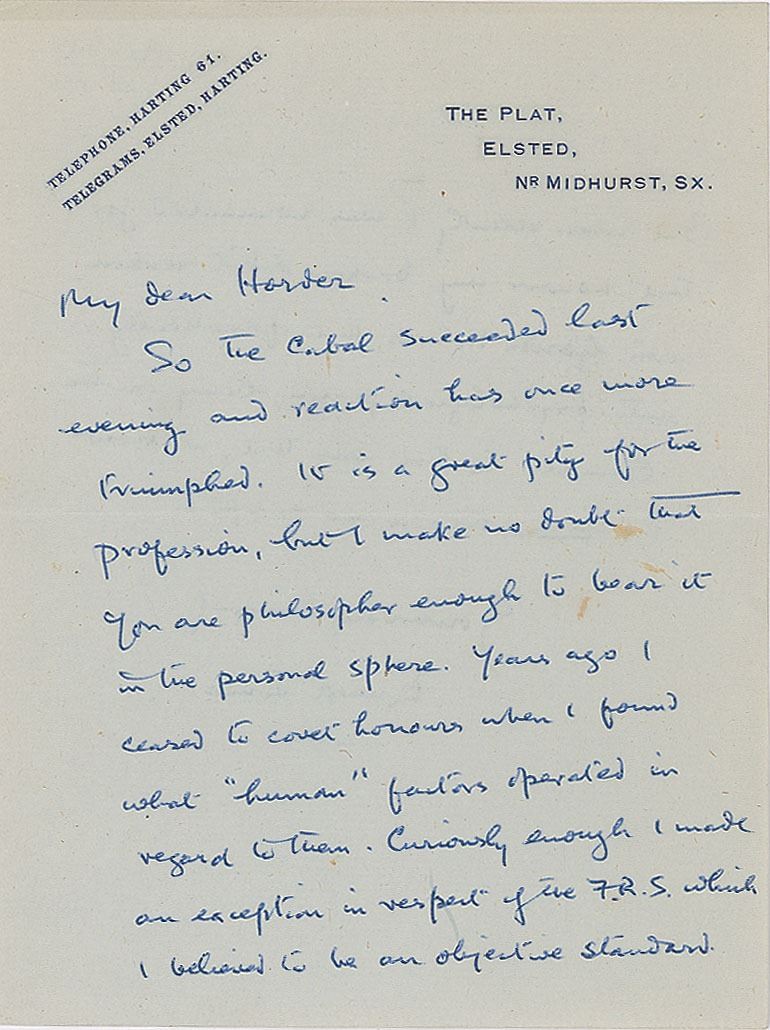 TELEPHONE, HARTING 61.
TELEGRAMS, ELSTED, HARTING.
THE PLAT,
ELSTED,
NR MIDHURST, SX.
My dear Horder.
So the Cabal succeeded last
evening and reaction has once more
triumphed. It is a great pity for the
profession, but I make no doubt that
you are philosopher enough to bear it
in the personal sphere. Years ago I
ceased to covet honours when I found
what "human" factors operated in
regard to them. Curiously enough I made
an exception in respect of the F.R.S. which
I believed to be an objective standard.